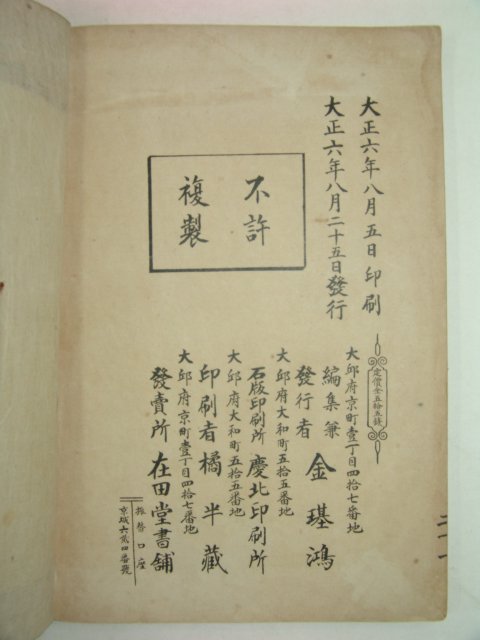 大正六年八月五日印刷
大正六年八月二十五日發行
不許
複製
定價金五拾五錢
大邱府京町壹丁目四拾七番地
編集兼
發行者 金璂鴻
大邱府大和町五拾五番地
石版印刷所 慶北印刷所
大邱府大和町五拾五番地
印刷者 橘半藏
大邱府京町壹丁目四拾七番地
發賣所 在田堂書舖
振替口座
京城六貳四番號